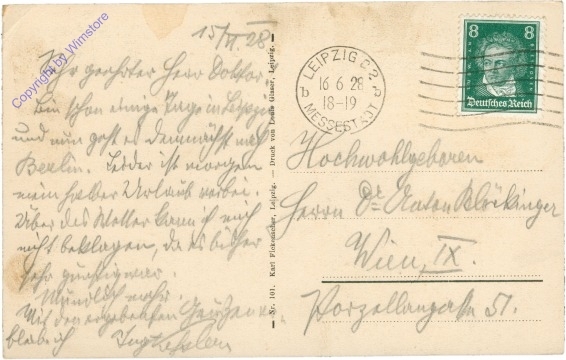 15/VI. 28
Sehr geehrter Herr Doktor.
Bin schon einige Tage in Leipzig
und nun geht es demnächst nach
Berlin. Leider ist morgen
mein halber Urlaub vorbei.
Über das Wetter kann ich mich
nicht beklagen, da es bisher
sehr günstig war.
Mündlich mehr.
Mit den ergebensten Grüßen
Copyright by Wimstore
Nr. 101. Karl Fickenscher, Leipzig. — Druck von Louis Glaser, Leipzig.
LEIPZIG C2
b 16 6 28 b
18-19
MESSESTADT
8 8
Deutsches Reich
Hochwohlgeboren
Herrn Dr Anton Klöckinger
Wien, IX.
Porzellangasse 51.